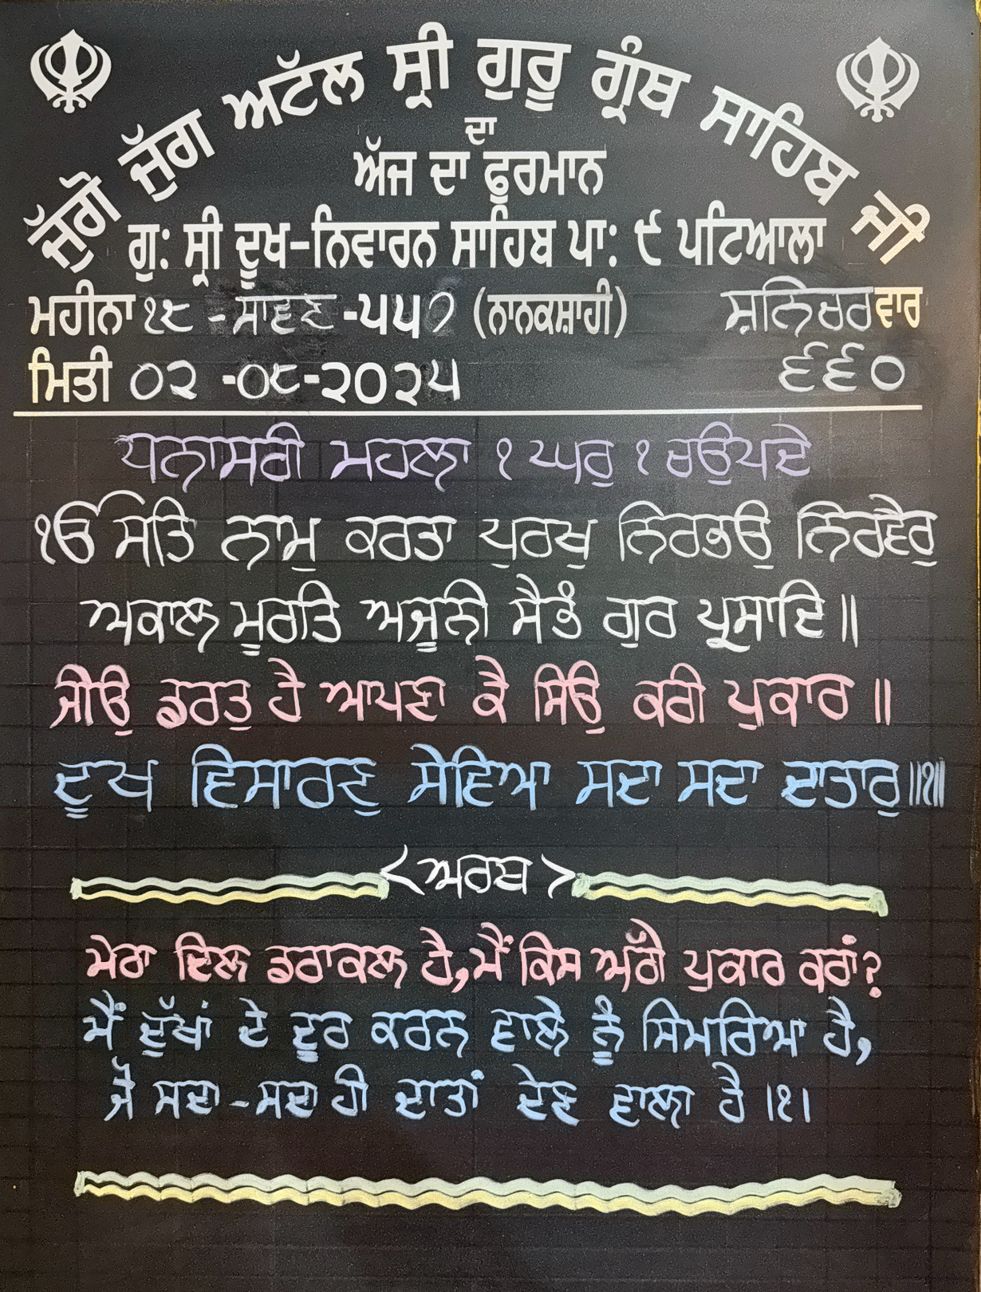 ਜੁੱਗੋ ਜੁੱਗ ਅਟੱਲ ਸ੍ਰੀ ਗੁਰੂ ਗ੍ਰੰਥ ਸਾਹਿਬ ਜੀ
ਦਾ
ਅੱਜ ਦਾ ਫੁਰਮਾਨ
ਗੁ: ਸ੍ਰੀ ਦੂਖ-ਨਿਵਾਰਨ ਸਾਹਿਬ ਪਾ: ੯ ਪਟਿਆਲਾ
ਮਹੀਨਾ ੧੮ - ਸਾਵਣ -੫੫੭ (ਨਾਨਕਸ਼ਾਹੀ) ਸ਼ਨਿਚਰਵਾਰ
ਮਿਤੀ ੦੨ -੦੮-੨੦੨੫ ੬੬੦
ਧਨਾਸਰੀ ਮਹਲਾ ੧ ਘਰੁ ੧ ਚਉਪਦੇ
ੴ ਸਤਿ ਨਾਮੁ ਕਰਤਾ ਪੁਰਖੁ ਨਿਰਭਉ ਨਿਰਵੈਰੁ
ਅਕਾਲ ਮੂਰਤਿ ਅਜੂਨੀ ਸੈਭੰ ਗੁਰ ਪ੍ਰਸਾਦਿ ॥
ਜੀਉ ਡਰਤੁ ਹੈ ਆਪਣਾ ਕੈ ਸਿਉ ਕਰੀ ਪੁਕਾਰ ॥
ਦੂਖ ਵਿਸਾਰਣੁ ਸੇਵਿਆ ਸਦਾ ਸਦਾ ਦਾਤਾਰੁ ॥੧॥
<ਅਰਥ>
ਮੇਰਾ ਦਿਲ ਡਰਾਕਲ ਹੈ, ਮੈਂ ਕਿਸ ਅੱਗੇ ਪੁਕਾਰ ਕਰਾਂ?
ਮੈਂ ਦੁੱਖਾਂ ਦੇ ਦੂਰ ਕਰਨ ਵਾਲੇ ਨੂੰ ਸਿਮਰਿਆ ਹੈ,
ਜੋ ਸਦਾ-ਸਦਾ ਹੀ ਦਾਤਾਂ ਦੇਣ ਵਾਲਾ ਹੈ ।੧।